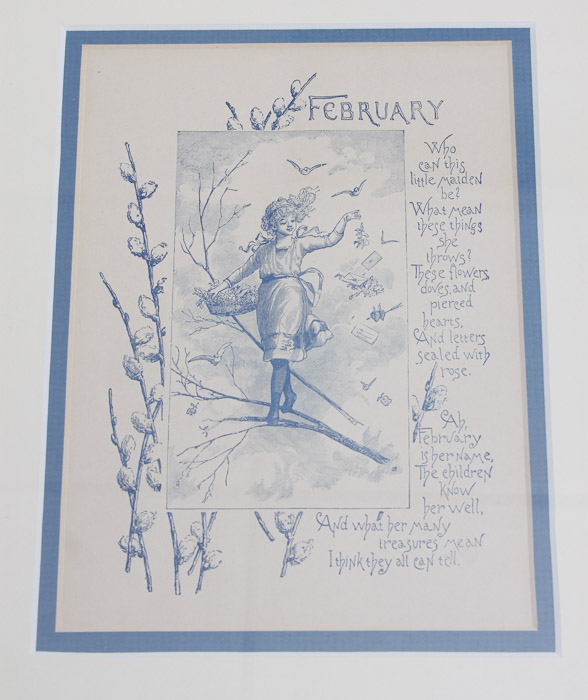 FEBRUARY
Who
can this
little maiden
be?
What mean
these things
she
throws?
These flowers,
doves, and
pierced
hearts,
And letters
sealed with
rose.
Ah,
February
is her name,
The children
know
her well,
And what her many
treasures mean
I think they all can tell.